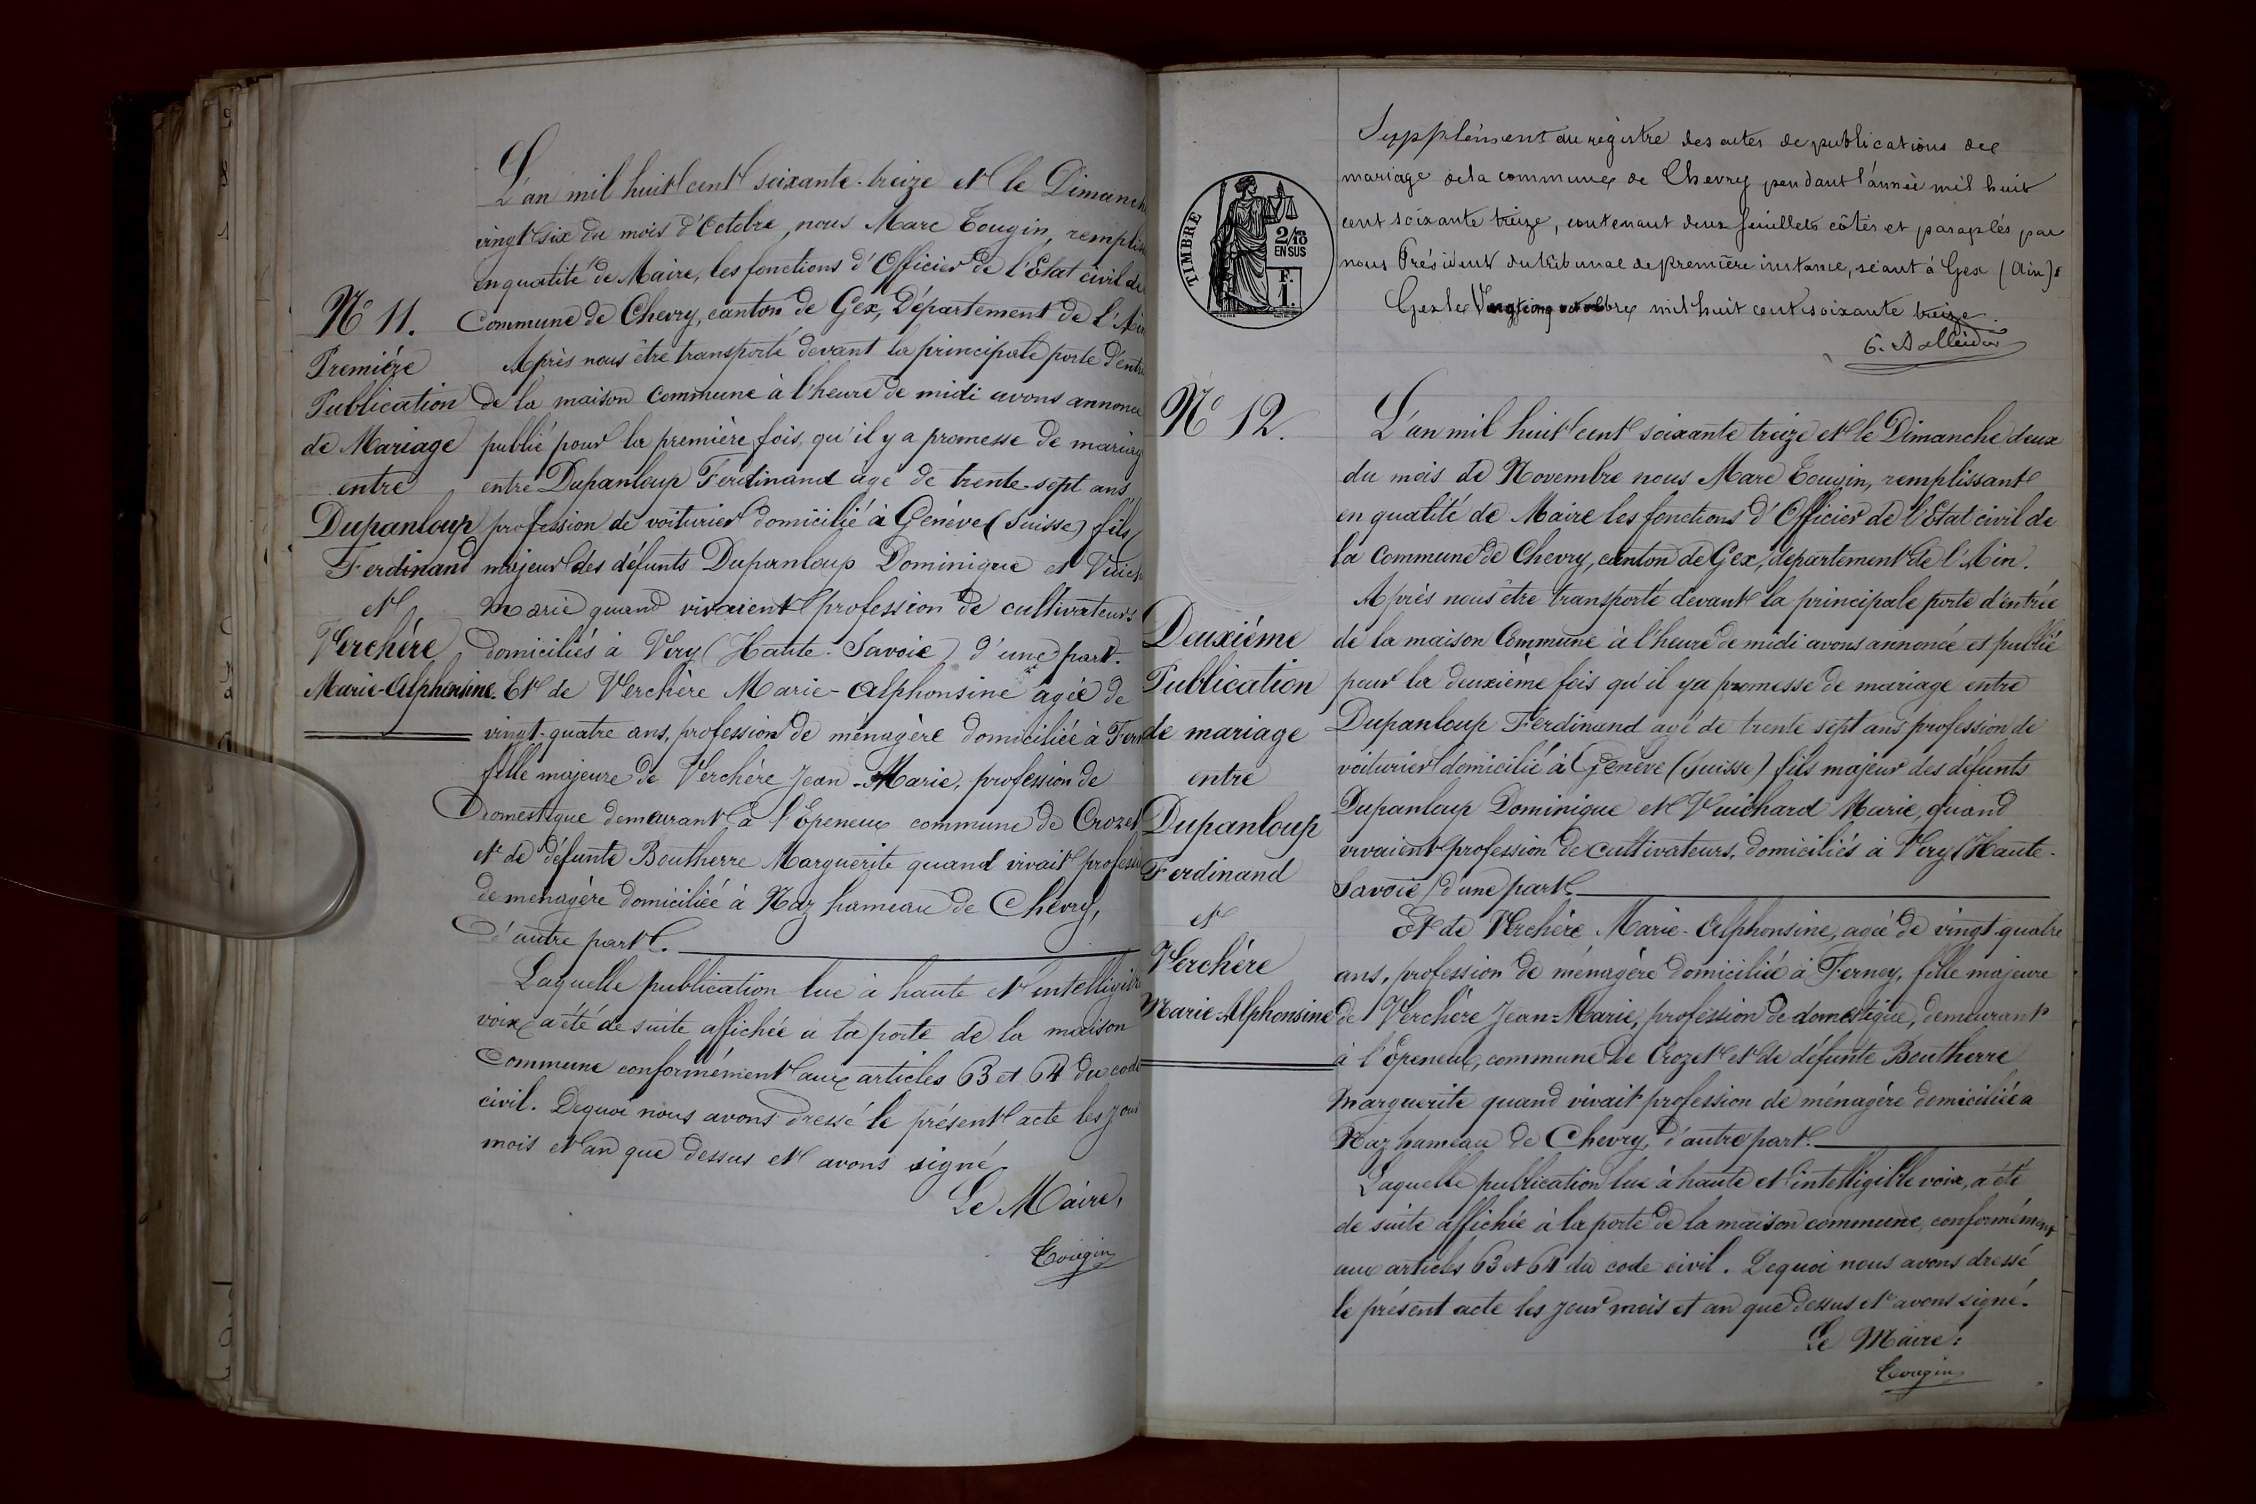 N° 11.
Première
Publication
de Mariage
entre
Dupanloup
Ferdinand
et
Verchère
Marie-Alphonsine.
L'an mil huit cent soixante-treize et le Dimanche
vingt six du mois d'Octobre, nous Marc Tougin, remplis
en qualité de Maire, les fonctions d'Officier de l'Etat civil de
Commune de Chevry, canton de Gex, Département de l'Ain
Après nous être transporté devant la principale porte d'entré
de la maison Commune à l'heure de midi avons annoncé
publié pour la première fois, qu'il y a promesse de mariag
entre Dupanloup Ferdinand agé de trente-sept ans
profession de voiturier domicilié à Genève (Suisse) fils
majeur des défunts Dupanloup Dominique et Vuich
Marie quand vivaient profession de cultivateurs
domiciliés à Véry (Haute-Savoie) d'une part.
Et de Verchère Marie-Alphonsine agée de
vingt-quatre ans, profession de ménagère domiciliée à Fern
fille majeure de Verchère Jean-Marie, profession de
Domestique demeurant à l'Epeneux commune de Crozet
et de défunte Boutherre Marguerite quand vivait professi
de ménagère domiciliée à Naz hameau de Chevry,
d'autre part.
Laquelle publication lue à haute et intelligible
voix a été de suite affichée à la porte de la maison
Commune conformément aux articles 63 et 64 du code
civil. Dequoi nous avons dressé le présent acte les jour
mois et an que dessus et avons signé
Le Maire,
Tougin
TIMBRE
2/10
EN SUS
F.
1.
Supplément au régistre des actes de publications de
mariage de la commune de Chevry pendant l'année mil huit
cent soixante treize, contenant deux feuillets côtés et paraphés par
nous Président du tribunal de première instance, séant à Gex (Ain).
Gex le Vingt cinq octobre mil huit cent soixante treize.
N° 12.
Deuxiéme
Publication
de mariage
entre
Dupanloup
Ferdinand
et
Verchère
Marie-Alphonsine
L'an mil huit cent soixante treize et le Dimanche deux
du mois de Novembre nous Marc Tougin, remplissant
en qualité de Maire les fonctions d'Officier de l'Etat civil de
la Commune de Chevry, canton de Gex, département de l'Ain.
Après nous être transporté devant la principale porte d'entrée
de la maison Commune à l'heure de midi avons annoncé et publié
pour la deuxième fois qu'il y a promesse de mariage entre
Dupanloup Ferdinand agé de trente sept ans profession de
voiturier domicilié à Genève (Suisse) fils majeur des défunts
Dupanloup Dominique et Vuichard Marie, quand
vivaient profession de cultivateurs, domiciliés à Véry (Haute-
Savoie) d'une part.
Et de Verchère Marie-Alphonsine, agée de vingt-quatre
ans, profession de ménagère domiciliée à Ferney, fille majeure
de Verchère Jean-Marie, profession de domestique, demeurant
à l'Epeneux, commune de Crozet et de défunte Boutherre
Marguerite quand vivait profession de ménagère domiciliée à
Naz hameau de Chevry, d'autre part.
Laquelle publication lue à haute et intelligible voix, a été
de suite affichée à la porte de la maison commune, conformément
aux articles 63 et 64 du code civil. Dequoi nous avons dressé
le présent acte les jour mois et an que dessus et avons signé.
Le Maire:
Tougin